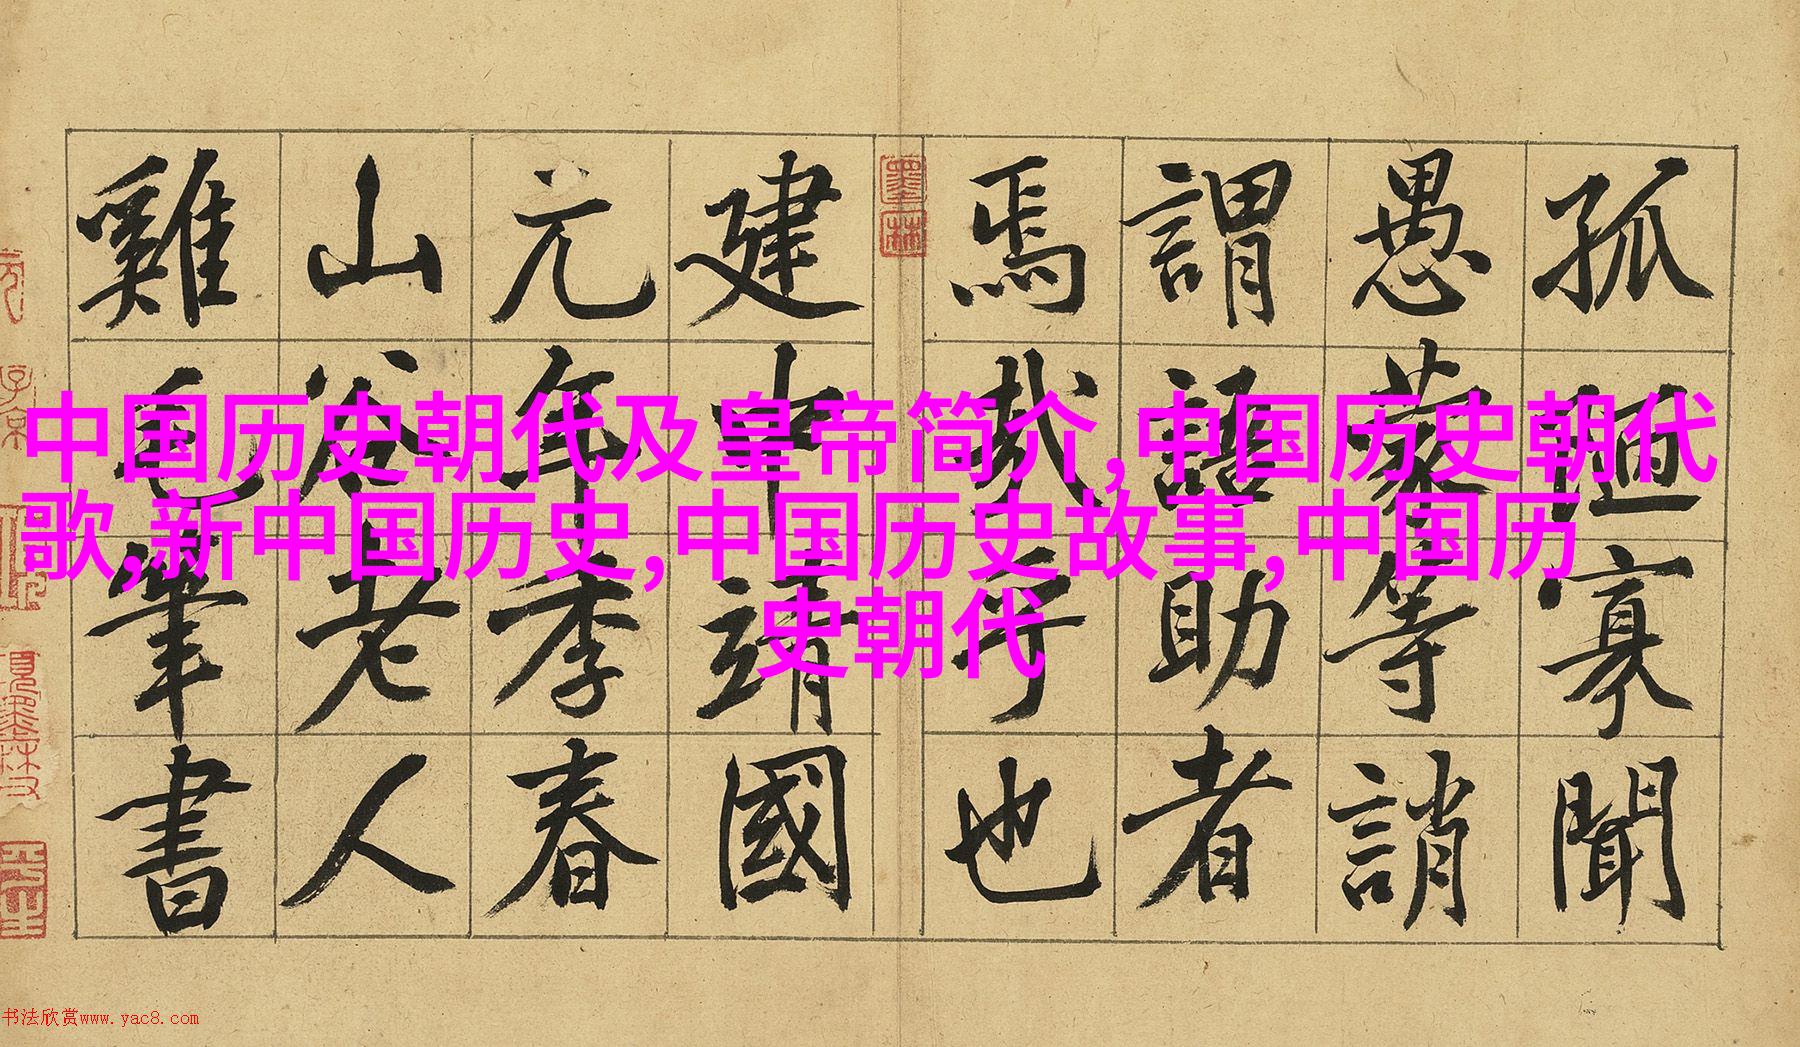 中国历史朝代及皇帝简介,中国历史朝代
歌,新中国历史,中国历史故事,中国历
史朝代
孤陋寡聞
愚蒙等誚
謂語助者
焉哉乎也
建中靖國
元年季春
山谷老人
雞毛筆書
墨林
书法欣赏www.yac8.com